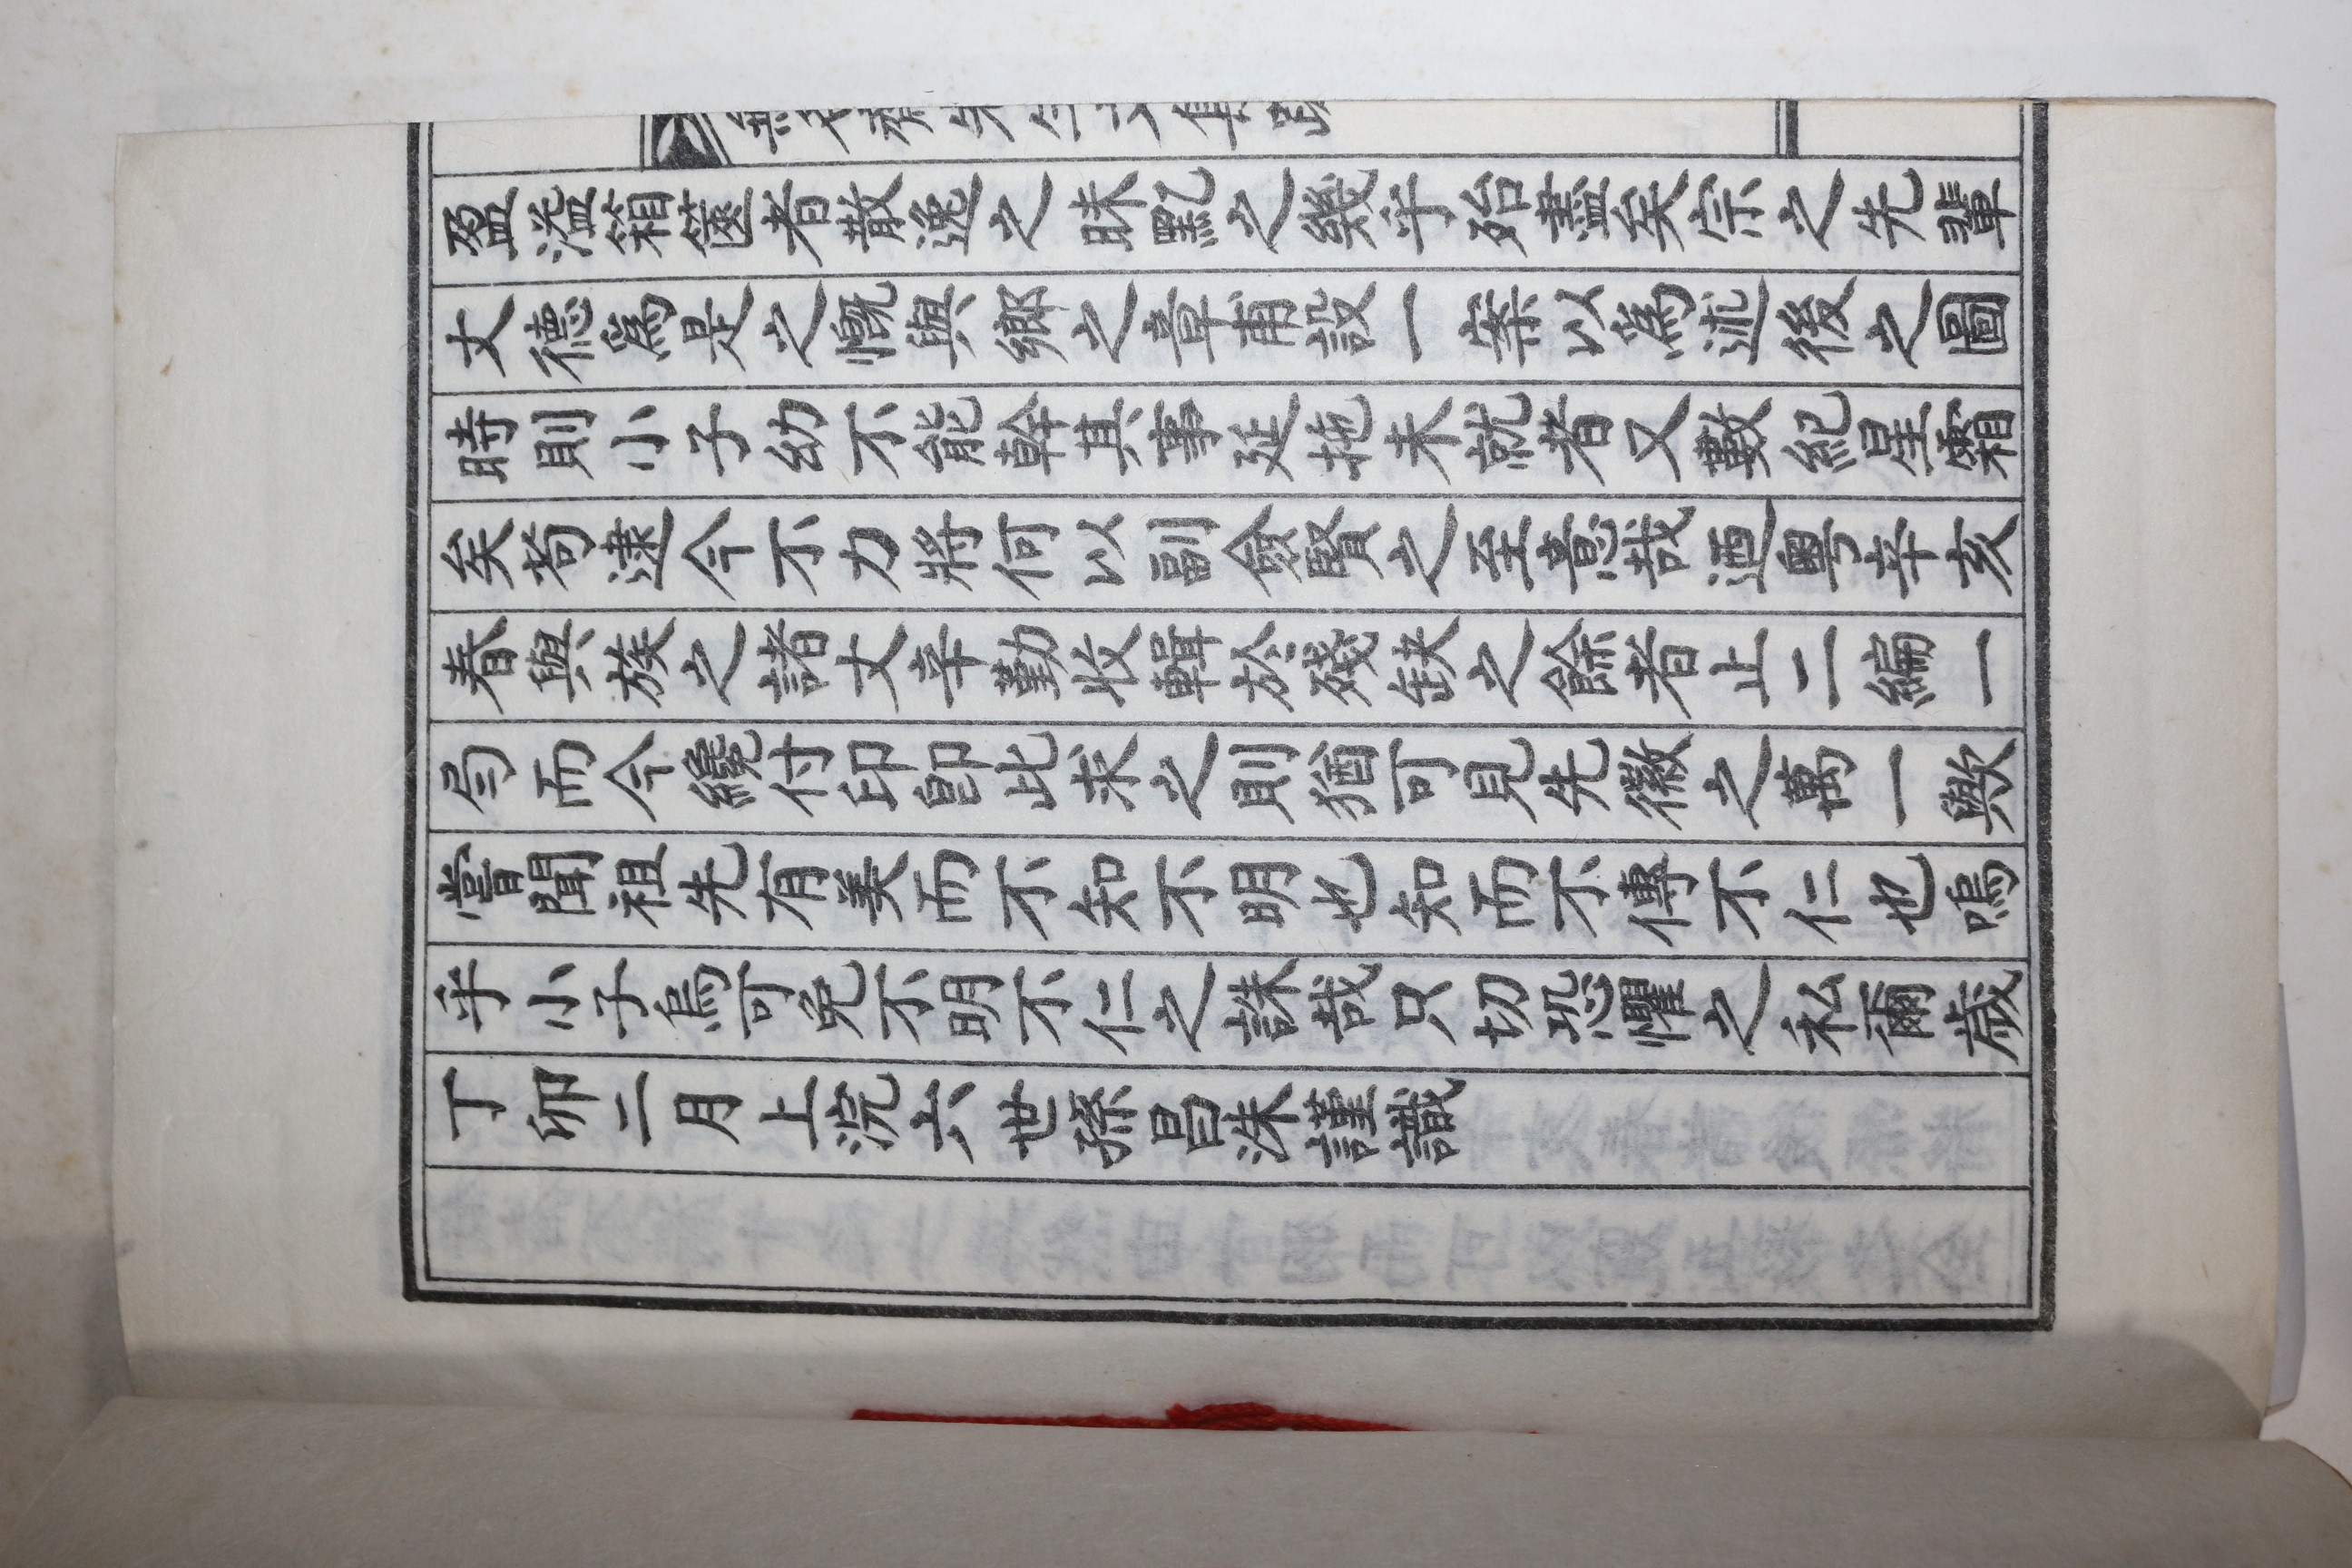 盈溢箱篋者散逸之昧之幾乎殆盡矣宗之先輩
丈德爲是之慨與鄉之章甫設一案以爲述後之圖
時則小子幼不能幹其事延拖未就者又數紀星霜
矣苟逮今不力將何以副僉賢之至意哉迺粤辛亥
春與族之諸丈辛勤收輯於殘缺之餘者止二編一
弓而今纔付印卽此求之則猶可見先徽之萬一歟
嘗聞祖先有美而不知不明也知而不傳不仁也嗚
乎小子烏可免不明不仁之誅哉只切恐懼之私爾歲
丁卯二月上浣六世孫昌洙謹識